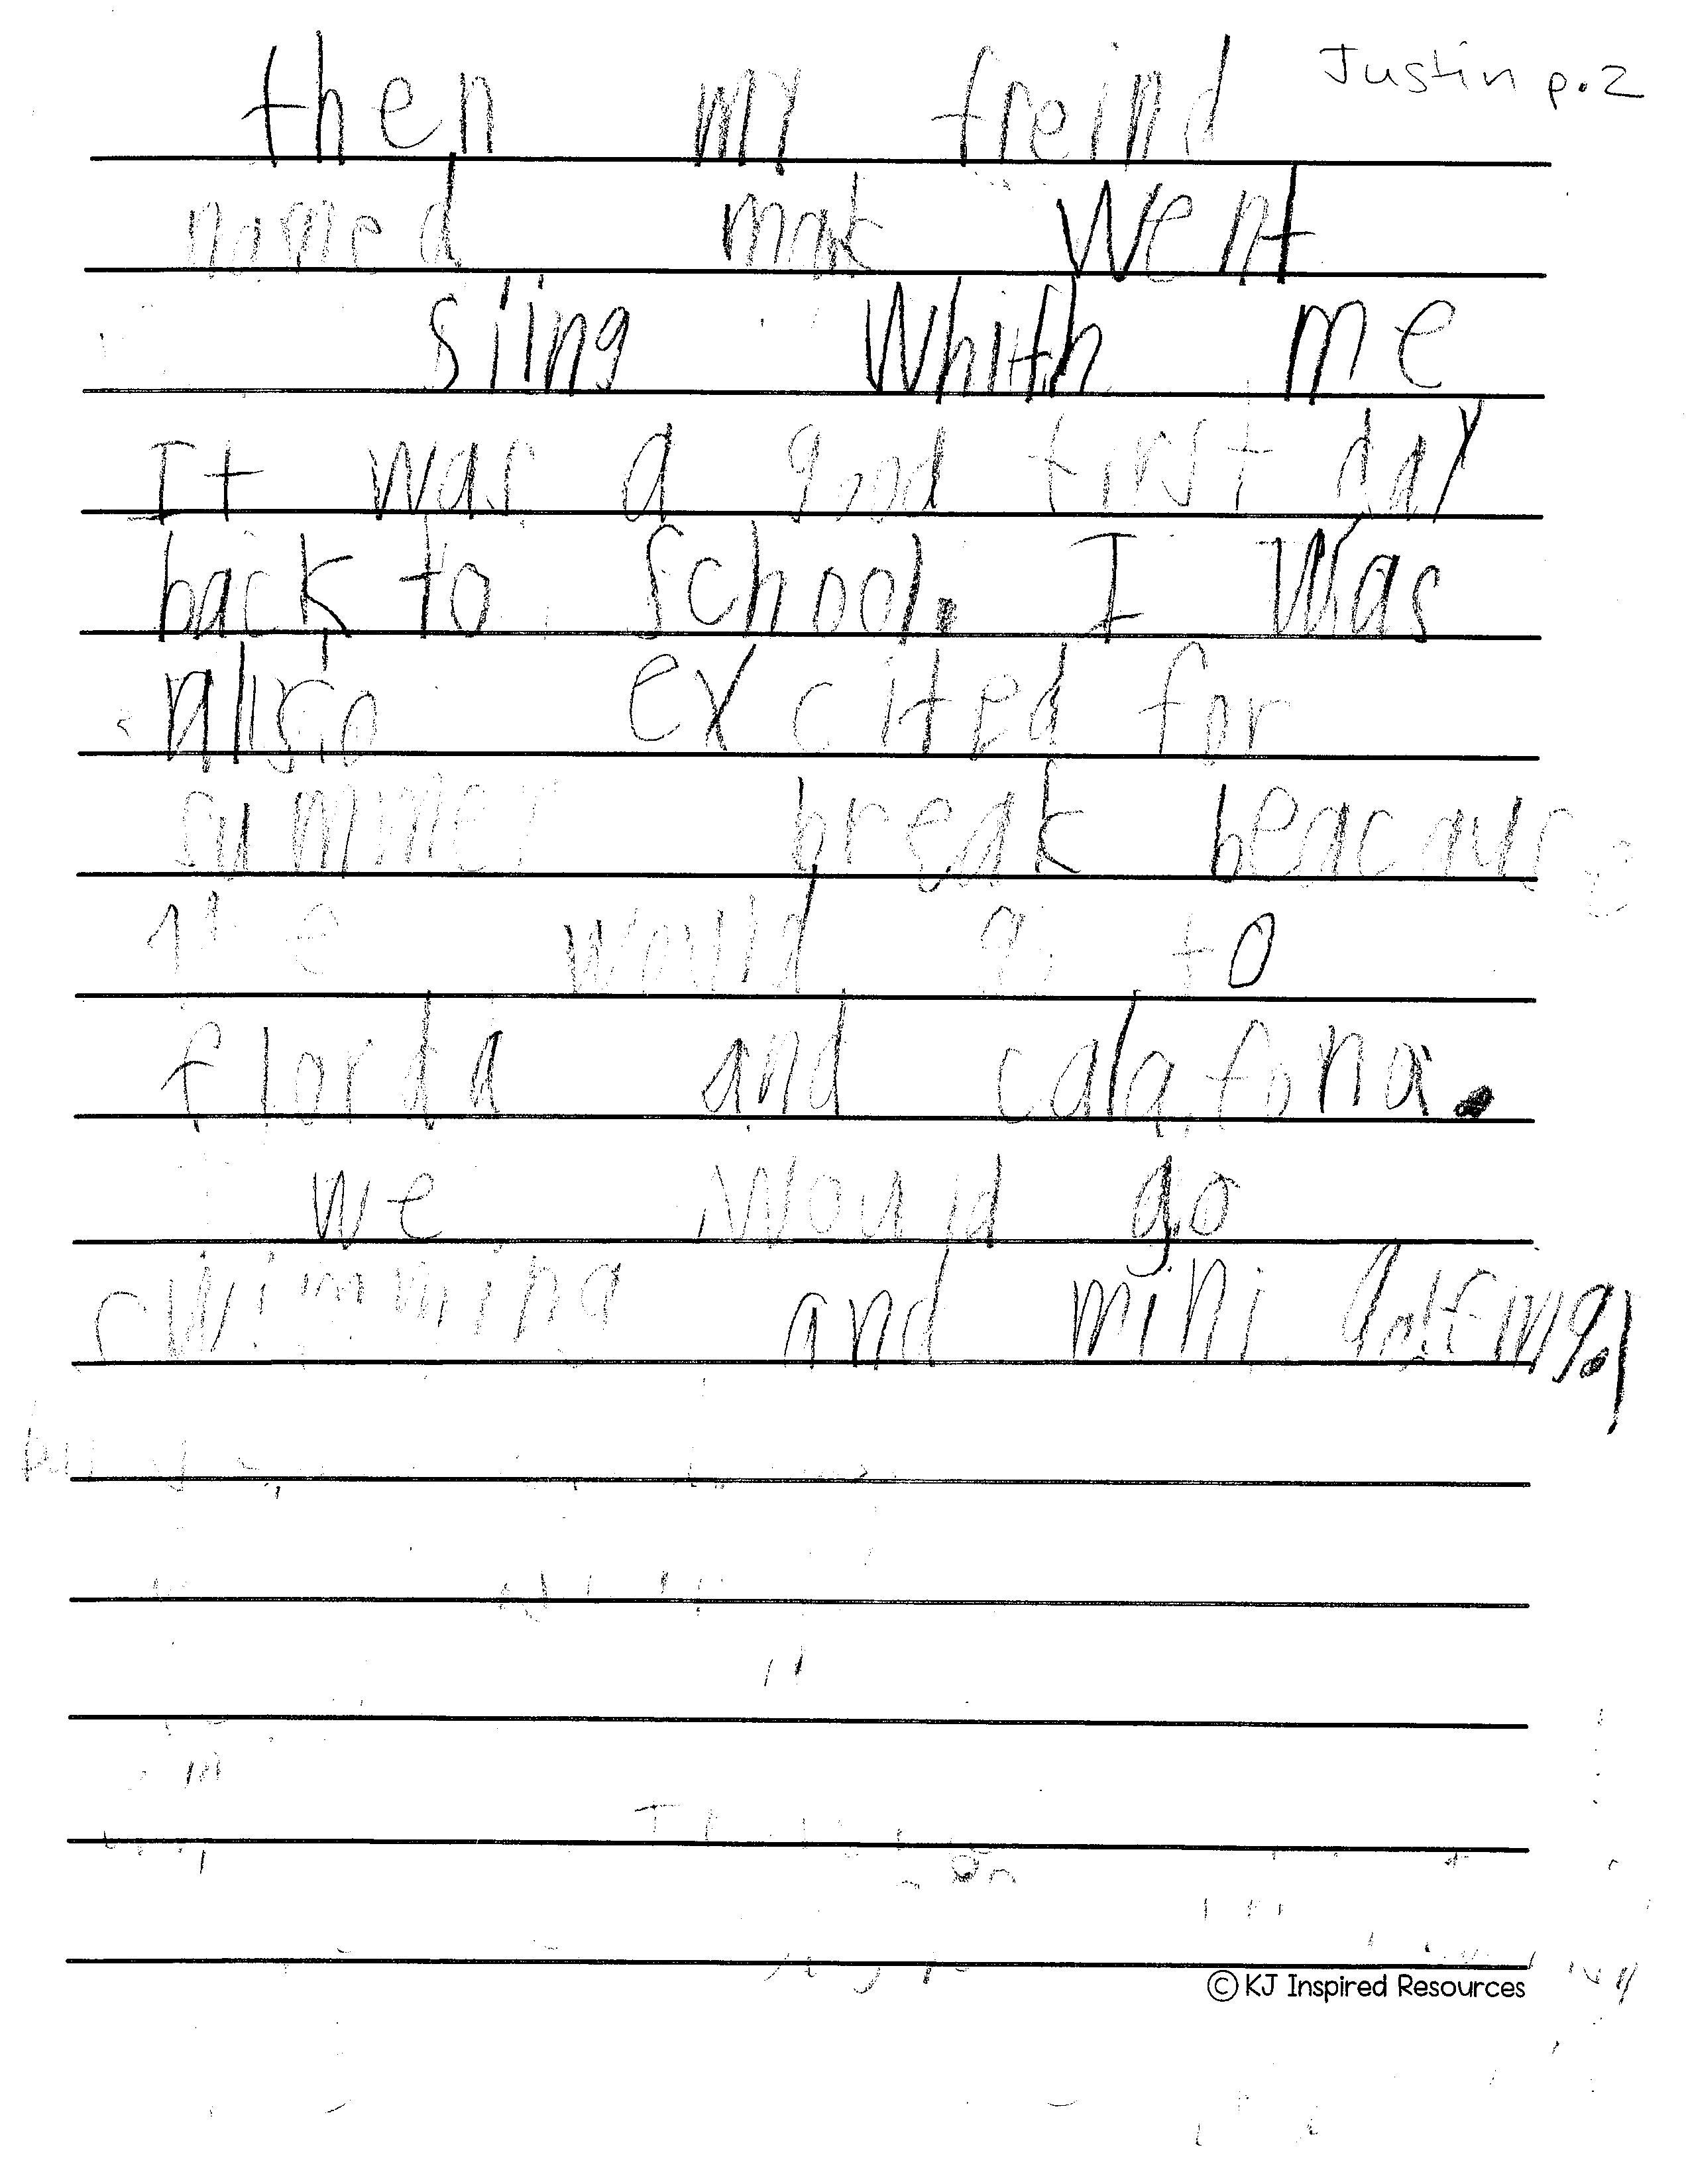 Justin p.2
then my freind
named mak went
siing whith me
It was a good first day
back to school. I was
also excited for
summer break beacause
we would go to
florda and calafona.
we would go
swimming and mini golfing.
© KJ Inspired Resources